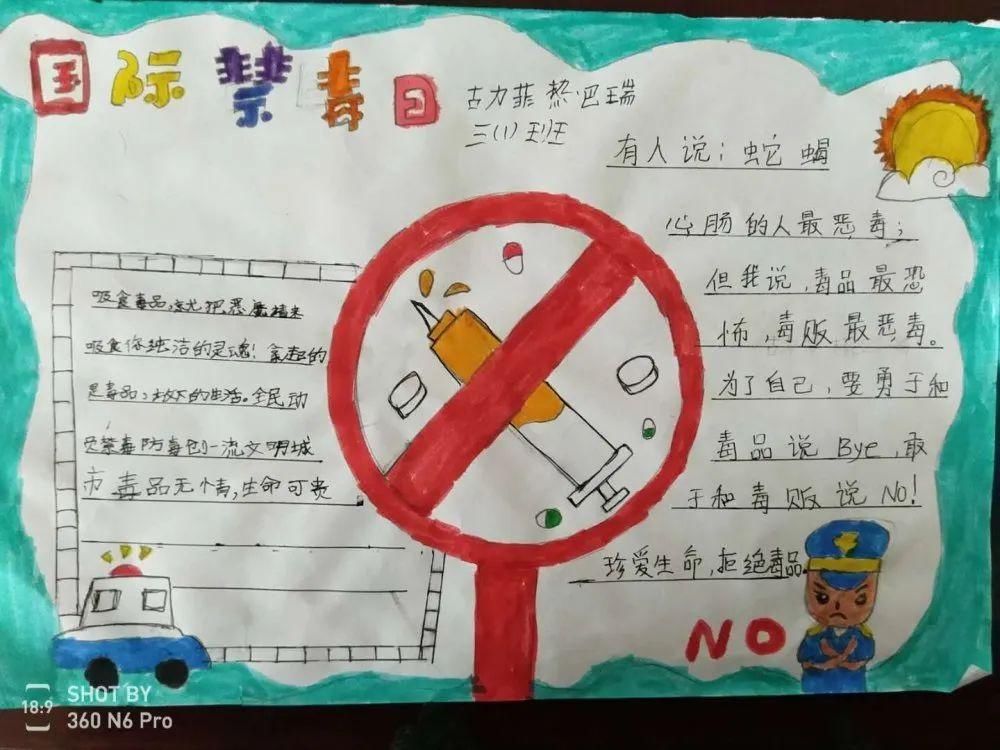 国际禁毒日
古力菲热·巴瑞
三(1)班
有人说；蛇蝎
心肠的人最恶毒；
但我说，毒品最恐
怖，毒贩最恶毒。
为了自己，要勇于和
毒品说Bye，敢
于和毒贩说No！
珍爱生命，拒绝毒品
吸食毒品，就把恶魔
吸食你纯洁的灵魂！拿起的
是毒品，放下的生活。全民动
禁毒防毒创一流文明城
市毒品无情，生命可贵
NO
SHOT BY
18:9
360 N6 Pro